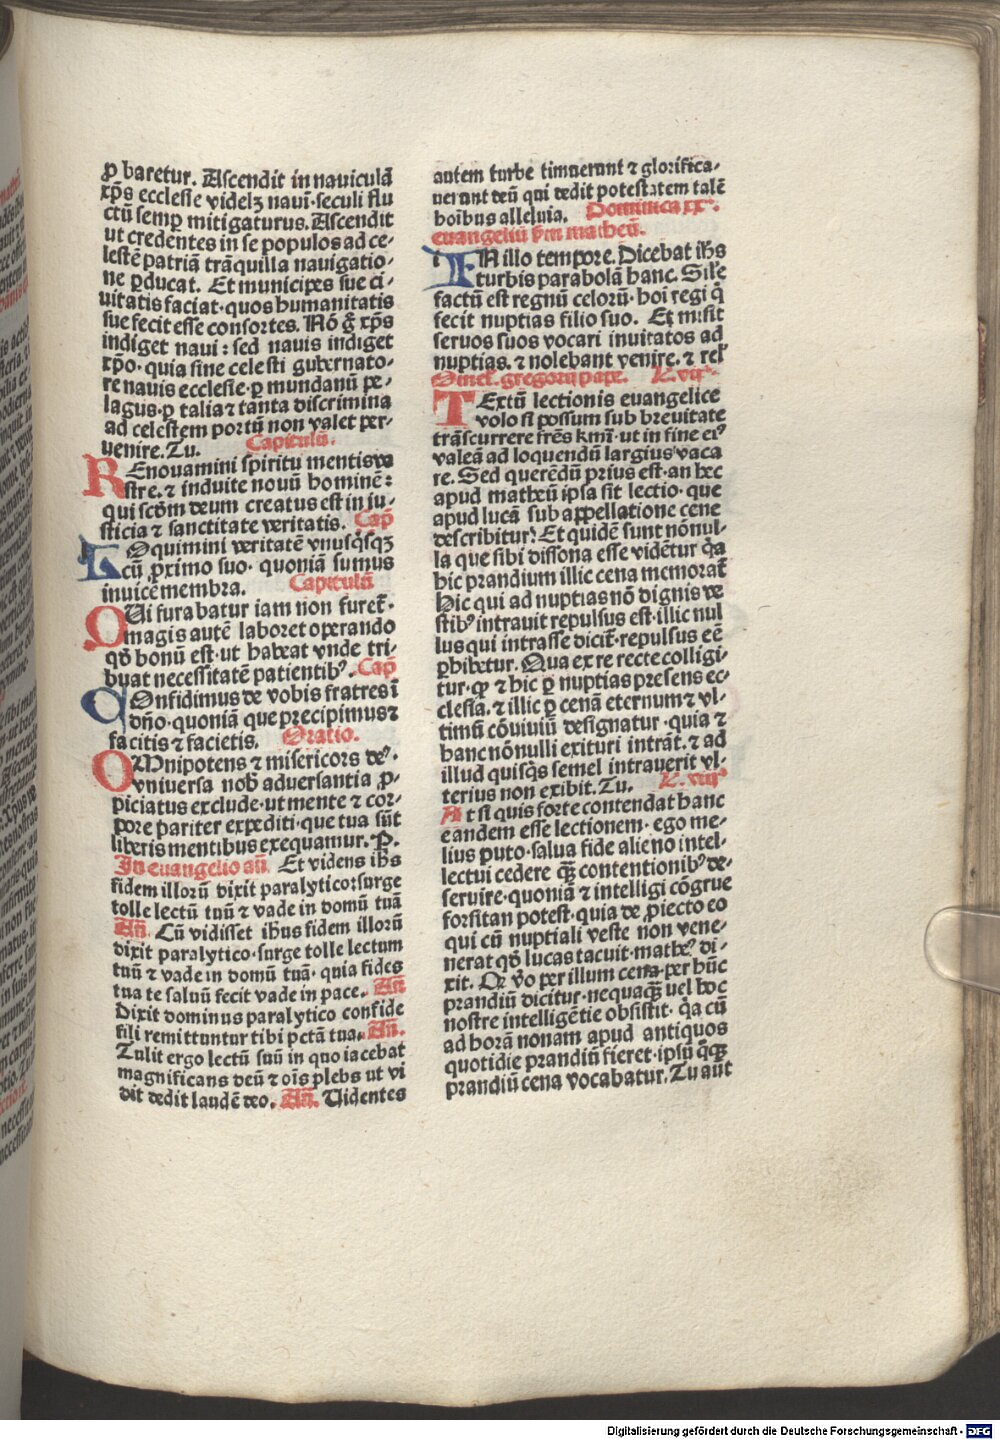 ꝓ baretur. Ascendit in nauiculā
xp̄s ecclesie videlꝫ naui·seculi flu
ctū semꝑ mitigaturus. Ascendit
ut credentes in se populos ad ce-
lestē patriā trāquilla nauigatio-
ne ꝑducat. Et municipes sue ci-
uitatis faciat·quos humanitatis
sue fecit esse consortes. Nō ḡ xp̄s
indiget naui: sed nauis indiget
xp̄o·quia sine celesti gubernato-
re nauis ecclesie·ꝑ mundanū pe-
lagus·ꝑ talia ⁊ tanta discrimina
ad celestem portū non valet per-
uenire. Tu. Capitulū.
REnouamini spiritu mentis ve
stre. ⁊ induite nouū hominē:
qui scd̄m deum creatus est in iu-
sticia ⁊ sanctitate veritatis. Cap̄
LOquimini veritatē vnusq̄sqꝫ
cū ꝓximo suo· quoniā sumus
inuicē membra. Capitulū
QUi furabatur iam non furet̄·
magis autē laboret operando
qd̄ bonū est·ut habeat vnde tri-
buat necessitatē patientibꝰ. Cap̄
COnfidimus de vobis fratres ī
dn̄o·quoniā que precipimus ⁊
facitis ⁊ facietis. Oratio.
OMnipotens ⁊ misericors deꝰ·
vniuersa nob̄ aduersantia ꝓ-
piciatus exclude·ut mente ⁊ cor-
pore pariter expediti·que tua sūt
liberis mentibus exequamur. P.
In euangelio an̄. Et videns ih̄s
fidem illorū dixit paralytico:surge
tolle lectū tuū ⁊ vade in domū tuā
An̄. Cū vidisset ihūs fidem illorū
dixit paralytico·surge tolle lectum
tuū ⁊ vade in domū tuā· quia fides
tua te saluū fecit vade in pace. An̄
Dixit dominus paralytico confide
fili remittuntur tibi pctā tua. An̄.
Tulit ergo lectū suū in quo iacebat
magnificans deū ⁊ oīs plebs ut vi
dit dedit laudē deo. An̄. Uidentes
autem turbe timuerunt ⁊ glorifica-
uerunt deū qui dedit potestatem talē
hoībus alleluia. Dominica xxᵃ.
euangeliū s̄m matheū.
IN illo tempore. Dicebat ih̄s
turbis parabolā hanc. Sile
factū est regnū celorū· hoī regi q̄
fecit nuptias filio suo. Et misit
seruos suos vocari inuitatos ad
nuptias. ⁊ nolebant venire. ⁊ rel̄
Omel. gregorii pape. L. vii.
TExtū lectionis euangelice
volo si possum sub breuitate
trāscurrere fr̄es kmī·ut in fine eiꝰ
valeā ad loquendū largius vaca
re. Sed querēdū prius est·an hec
apud matheū ipsa sit lectio· que
apud lucā sub appellatione cene
describitur? Et quidē sunt nōnul-
la que sibi dissona esse vidētur q̄a
hic prandium illic cena memorat̄
Hic qui ad nuptias nō dignis ve
stibꝰ intrauit repulsus est·illic nul
lus qui intrasse dicit̄·repulsus eē
ꝑhibetur. Qua ex re recte colligi-
tur· ꝙ ⁊ hic ꝑ nuptias presens ec-
clesia. ⁊ illic ꝑ cenā eternum ⁊ vl-
timū cōuiuiū designatur· quia ⁊
hanc nōnulli exituri intrāt. ⁊ ad
illud quisq̄s semel intrauerit vl-
terius non exibit. Tu. L. viii
At si quis forte contendat hanc
eandem esse lectionem· ego me-
lius puto·salua fide alieno intel-
lectui cedere q̄ꝫ contentionibꝰ de-
seruire·quoniā ⁊ intelligi cōgrue
forsitan potest·quia de ꝓiecto eo
qui cū nuptiali veste non vene-
nerat qd̄ lucas tacuit·matheꝰ di-
xit. Qr v̄o per illum cena·per hūc
prandiū dicitur·nequaq̄ꝫ uel hoc
nostre intelligētie obsistit· q̄a cū
ad horā nonam apud antiquos
quotidie prandiū fieret·ipsū q̄q̄ꝫ
prandiū cena vocabatur. Tu aūt
Digitalisierung gefördert durch die Deutsche Forschungsgemeinschaft - DFG